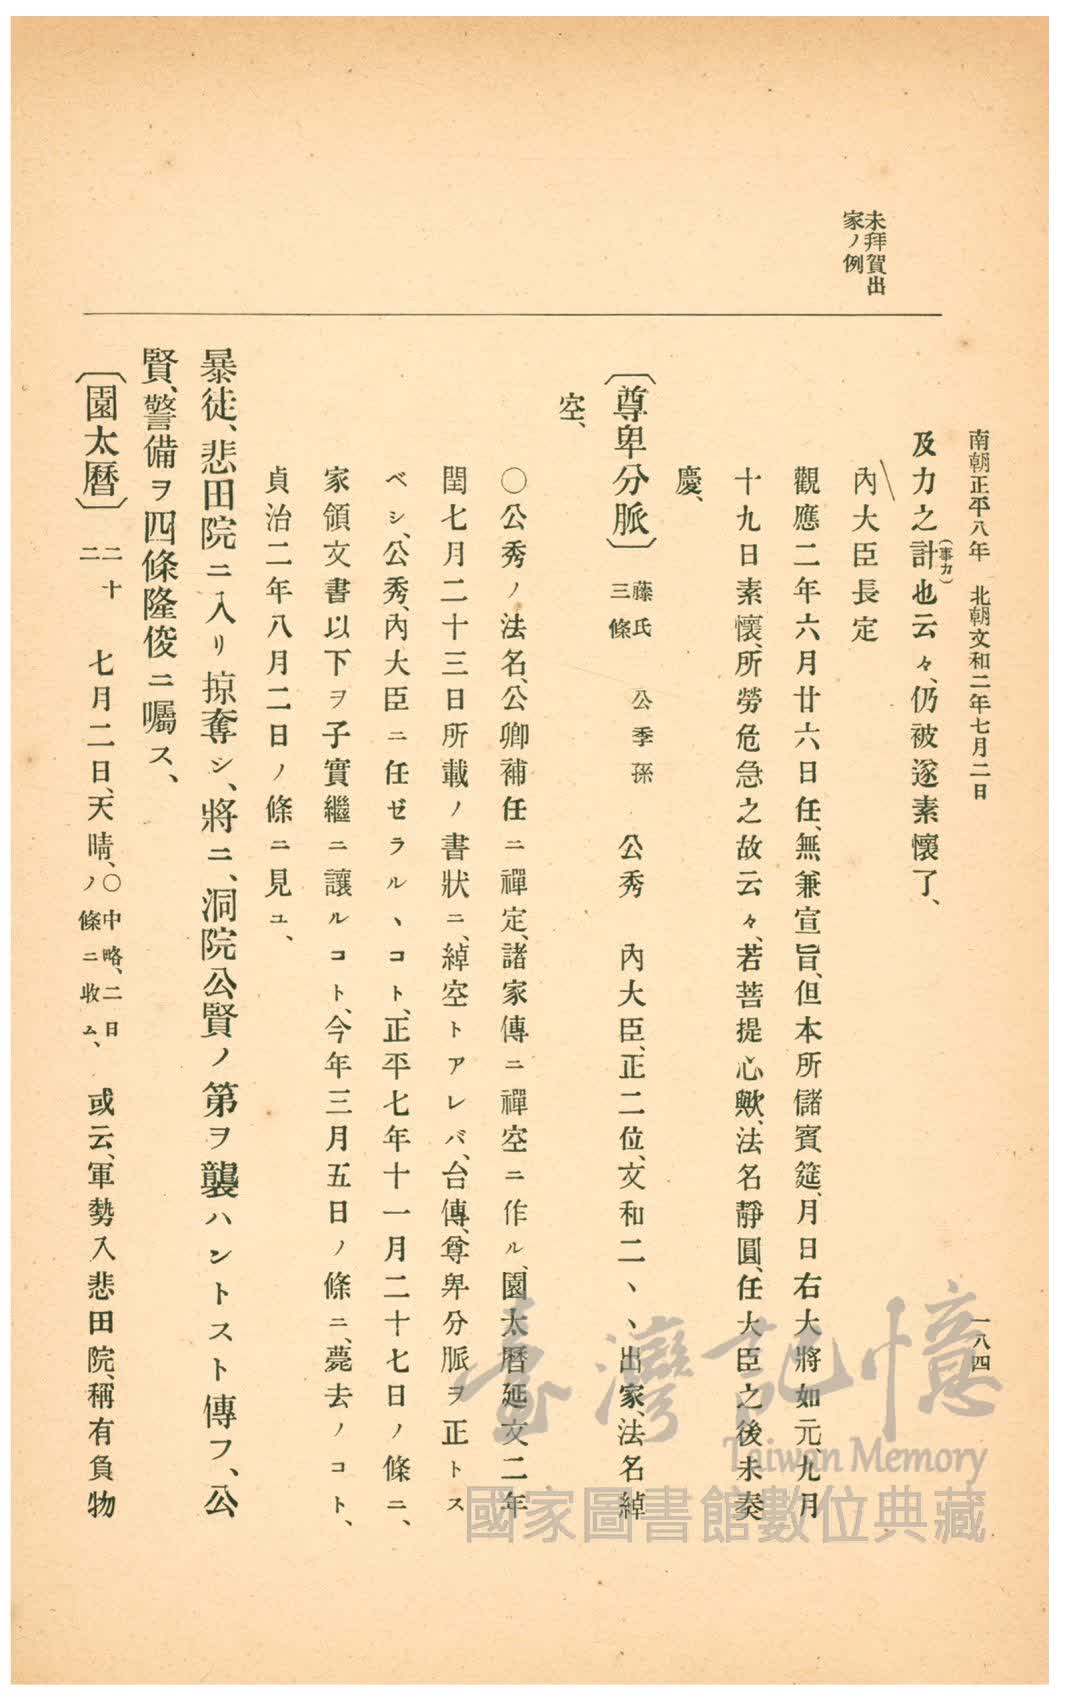 南朝正平八年　北朝文和二年七月二日
一八四
未拜賀出
家ノ例
及力之計(事カ)也云々、仍被遂素懷了、
內大臣長定
觀應二年六月廿六日任、無兼宣旨、但本所儲賓筵、月日右大將如元、九月
十九日素懷、所勞危急之故云々、若菩提心歟、法名靜圓、任大臣之後未奏
慶、
〔尊卑分脈〕藤氏三條　公季孫　公秀　內大臣、正二位、文和二、、出家、法名綽
空、
○公秀ノ法名、公卿補任ニ禪定、諸家傳ニ禪空ニ作ル、園太曆延文二年
閏七月二十三日所載ノ書狀ニ、綽空トアレバ、台傳、尊卑分脈ヲ正トス
ベシ、公秀、內大臣ニ任ゼラルヽコト、正平七年十一月二十七日ノ條ニ、
家領文書以下ヲ子實繼ニ讓ルコト、今年三月五日ノ條ニ、薨去ノコト、
貞治二年八月二日ノ條ニ見ユ、
暴徒、悲田院ニ入リ掠奪シ、將ニ、洞院公賢ノ第ヲ襲ハントスト傳フ、公
賢、警備ヲ四條隆俊ニ囑ス、
〔園太曆〕二十二　七月二日、天晴、○中略、二日ノ條ニ收ム、　或云、軍勢入悲田院、稱有負物
臺灣記憶
Taiwan Memory
國家圖書館數位典藏